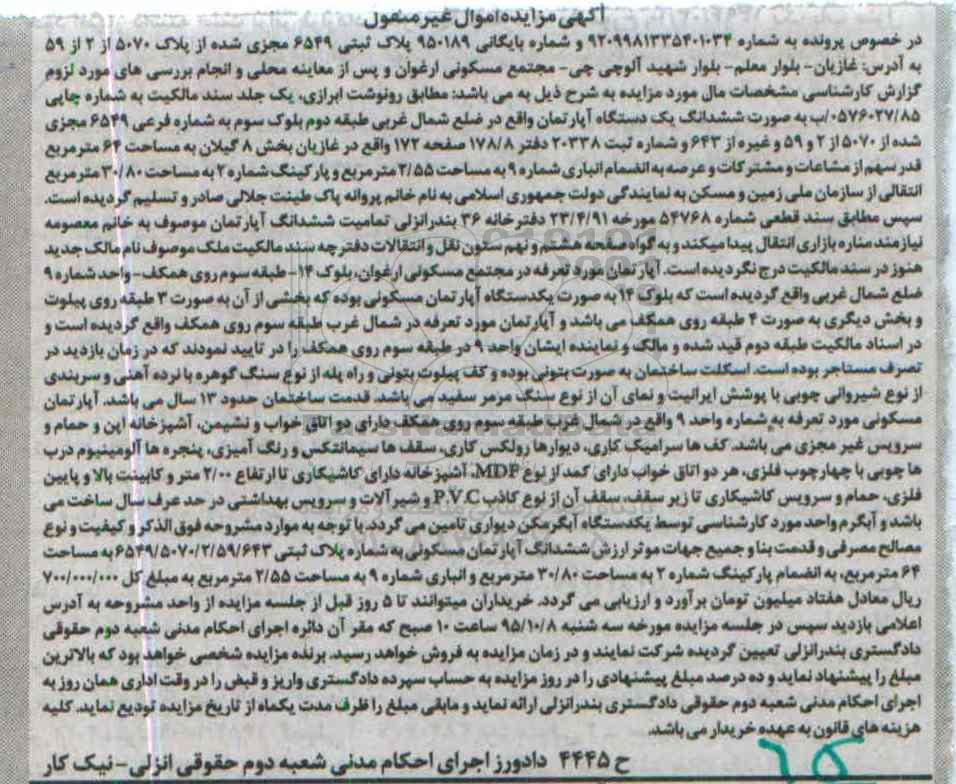 آگهی مزایده اموال غیرمنقول
در خصوص پرونده به شماره ۹۲۰۹۹۸۱۳۳۵۴۰۱۰۳۴ و شماره بایگانی ۹۵۰۱۸۹ پلاک ثبتی ۶۵۴۹ مجزی شده از پلاک ۵۰۷۰ از ۲ از ۵۹
به آدرس: غازیان- بلوار معلم- بلوار شهید آلوچی چی- مجتمع مسکونی ارغوان و پس از معاینه محلی و انجام بررسی های مورد لزوم
گزارش کارشناسی مشخصات مال مورد مزایده به شرح ذیل به می باشد: مطابق رونوشت ابرازی، یک جلد سند مالکیت به شماره چاپی
۰۵۷۶۰۲۷/۸۵/ب به صورت ششدانگ یک دستگاه آپارتمان واقع در ضلع شمال غربی طبقه دوم بلوک سوم به شماره فرعی ۶۵۴۹ مجزی
شده از ۵۰۷۰ از ۲ و ۵۹ و غیره از ۶۴۳ و شماره ثبت ۲۰۳۳۸ دفتر ۱۷۸/۸ صفحه ۱۷۲ واقع در غازیان بخش ۸ گیلان به مساحت ۶۴ مترمربع
قدرسهم از مشاعات و مشترکات و عرصه به انضمام انباری شماره ۹ به مساحت ۲/۵۵ مترمربع و پارکینگ شماره ۲ به مساحت ۳۰/۸۰ مترمربع
انتقالی از سازمان ملی زمین و مسکن به نمایندگی دولت جمهوری اسلامی به نام خانم پروانه پاک طینت جلالی صادر و تسلیم گردیده است.
سپس مطابق سند قطعی شماره ۵۴۷۶۸ مورخه ۲۳/۴/۹۱ دفترخانه ۳۶ بندرانزلی تمامیت ششدانگ آپارتمان موصوف به خانم معصومه
نیازمند مناره بازاری انتقال پیدا میکند و به گواه صفحه هشتم و نهم ستون نقل و انتقالات دفترچه سند مالکیت ملک موصوف نام مالک جدید
هنوز در سند مالکیت درج نگردیده است. آپارتمان مورد تعرفه در مجتمع مسکونی ارغوان، بلوک ۱۴- طبقه سوم روی همکف- واحد شماره ۹
ضلع شمال غربی واقع گردیده است که بلوک ۱۴ به صورت یکدستگاه آپارتمان مسکونی بوده که بخشی از آن به صورت ۳ طبقه روی پیلوت
و بخش دیگری به صورت ۴ طبقه روی همکف می باشد و آپارتمان مورد تعرفه در شمال غرب طبقه سوم روی همکف واقع گردیده است و
در اسناد مالکیت طبقه دوم قید شده و مالک و نماینده ایشان واحد ۹ در طبقه سوم روی همکف را در تایید نمودند که در زمان بازدید در
تصرف مستاجر بوده است. اسکلت ساختمان به صورت بتونی بوده و کف پیلوت بتونی و راه پله از نوع سنگ گوهره با نرده آهنی و سربندی
از نوع شیروانی چوبی با پوشش ایرانیت و نمای آن از نوع سنگ مرمر سفید می باشد. قدمت ساختمان حدود ۱۳ سال می باشد. آپارتمان
مسکونی مورد تعرفه به شماره واحد ۹ واقع در شمال غرب طبقه سوم روی همکف دارای دو اتاق خواب و نشیمن، آشپزخانه اپن و حمام و
سرویس غیر مجزی می باشد. کف ها سرامیک کاری، دیوارها رولکس کاری، سقف ها سیمانتکس و رنگ آمیزی، پنجره ها آلومینیوم درب
ها چوبی با چهارچوب فلزی، هر دو اتاق خواب دارای کمد از نوع MDF، آشپزخانه دارای کاشیکاری تا ارتفاع ۲/۰۰ متر و کابینت بالا و پایین
فلزی، حمام و سرویس کاشیکاری تا زیر سقف، سقف آن از نوع کاذب P.V.C و شیرآلات و سرویس بهداشتی در حد عرف سال ساخت می
باشد و آبگرم واحد مورد کارشناسی توسط یکدستگاه آبگرمکن دیواری تامین می گردد. با توجه به موارد مشروحه فوق الذکر و کیفیت و نوع
مصالح مصرفی و قدمت بنا و جمیع جهات موثر ارزش ششدانگ آپارتمان مسکونی به شماره پلاک ثبتی ۶۵۴۹/۵۰۷۰/۲/۵۹/۶۴۳ به مساحت
۶۴ مترمربع، به انضمام پارکینگ شماره ۲ به مساحت ۳۰/۸۰ مترمربع و انباری شماره ۹ به مساحت ۲/۵۵ مترمربع به مبلغ کل ۷۰۰/۰۰۰/۰۰۰
ریال معادل هفتاد میلیون تومان برآورد و ارزیابی می گردد. خریداران میتوانند تا ۵ روز قبل از جلسه مزایده از واحد مشروحه به آدرس
اعلامی بازدید سپس در جلسه مزایده مورخه سه شنبه ۹۵/۱۰/۸ ساعت ۱۰ صبح که مقر آن دائره اجرای احکام مدنی شعبه دوم حقوقی
دادگستری بندرانزلی تعیین گردیده شرکت نمایند و در زمان مزایده به فروش خواهد رسید. برنده مزایده شخصی خواهد بود که بالاترین
مبلغ را پیشنهاد نماید و ده درصد مبلغ پیشنهادی را در روز مزایده به حساب سپرده دادگستری واریز و قبض را در وقت اداری همان روز به
اجرای احکام مدنی شعبه دوم حقوقی دادگستری بندرانزلی ارائه نماید و مابقی مبلغ را ظرف مدت یکماه از تاریخ مزایده تودیع نماید. کلیه
هزینه های قانون به عهده خریدار می باشد.
ح ۴۴۴۵ دادورز اجرای احکام مدنی شعبه دوم حقوقی انزلی- نیک کار